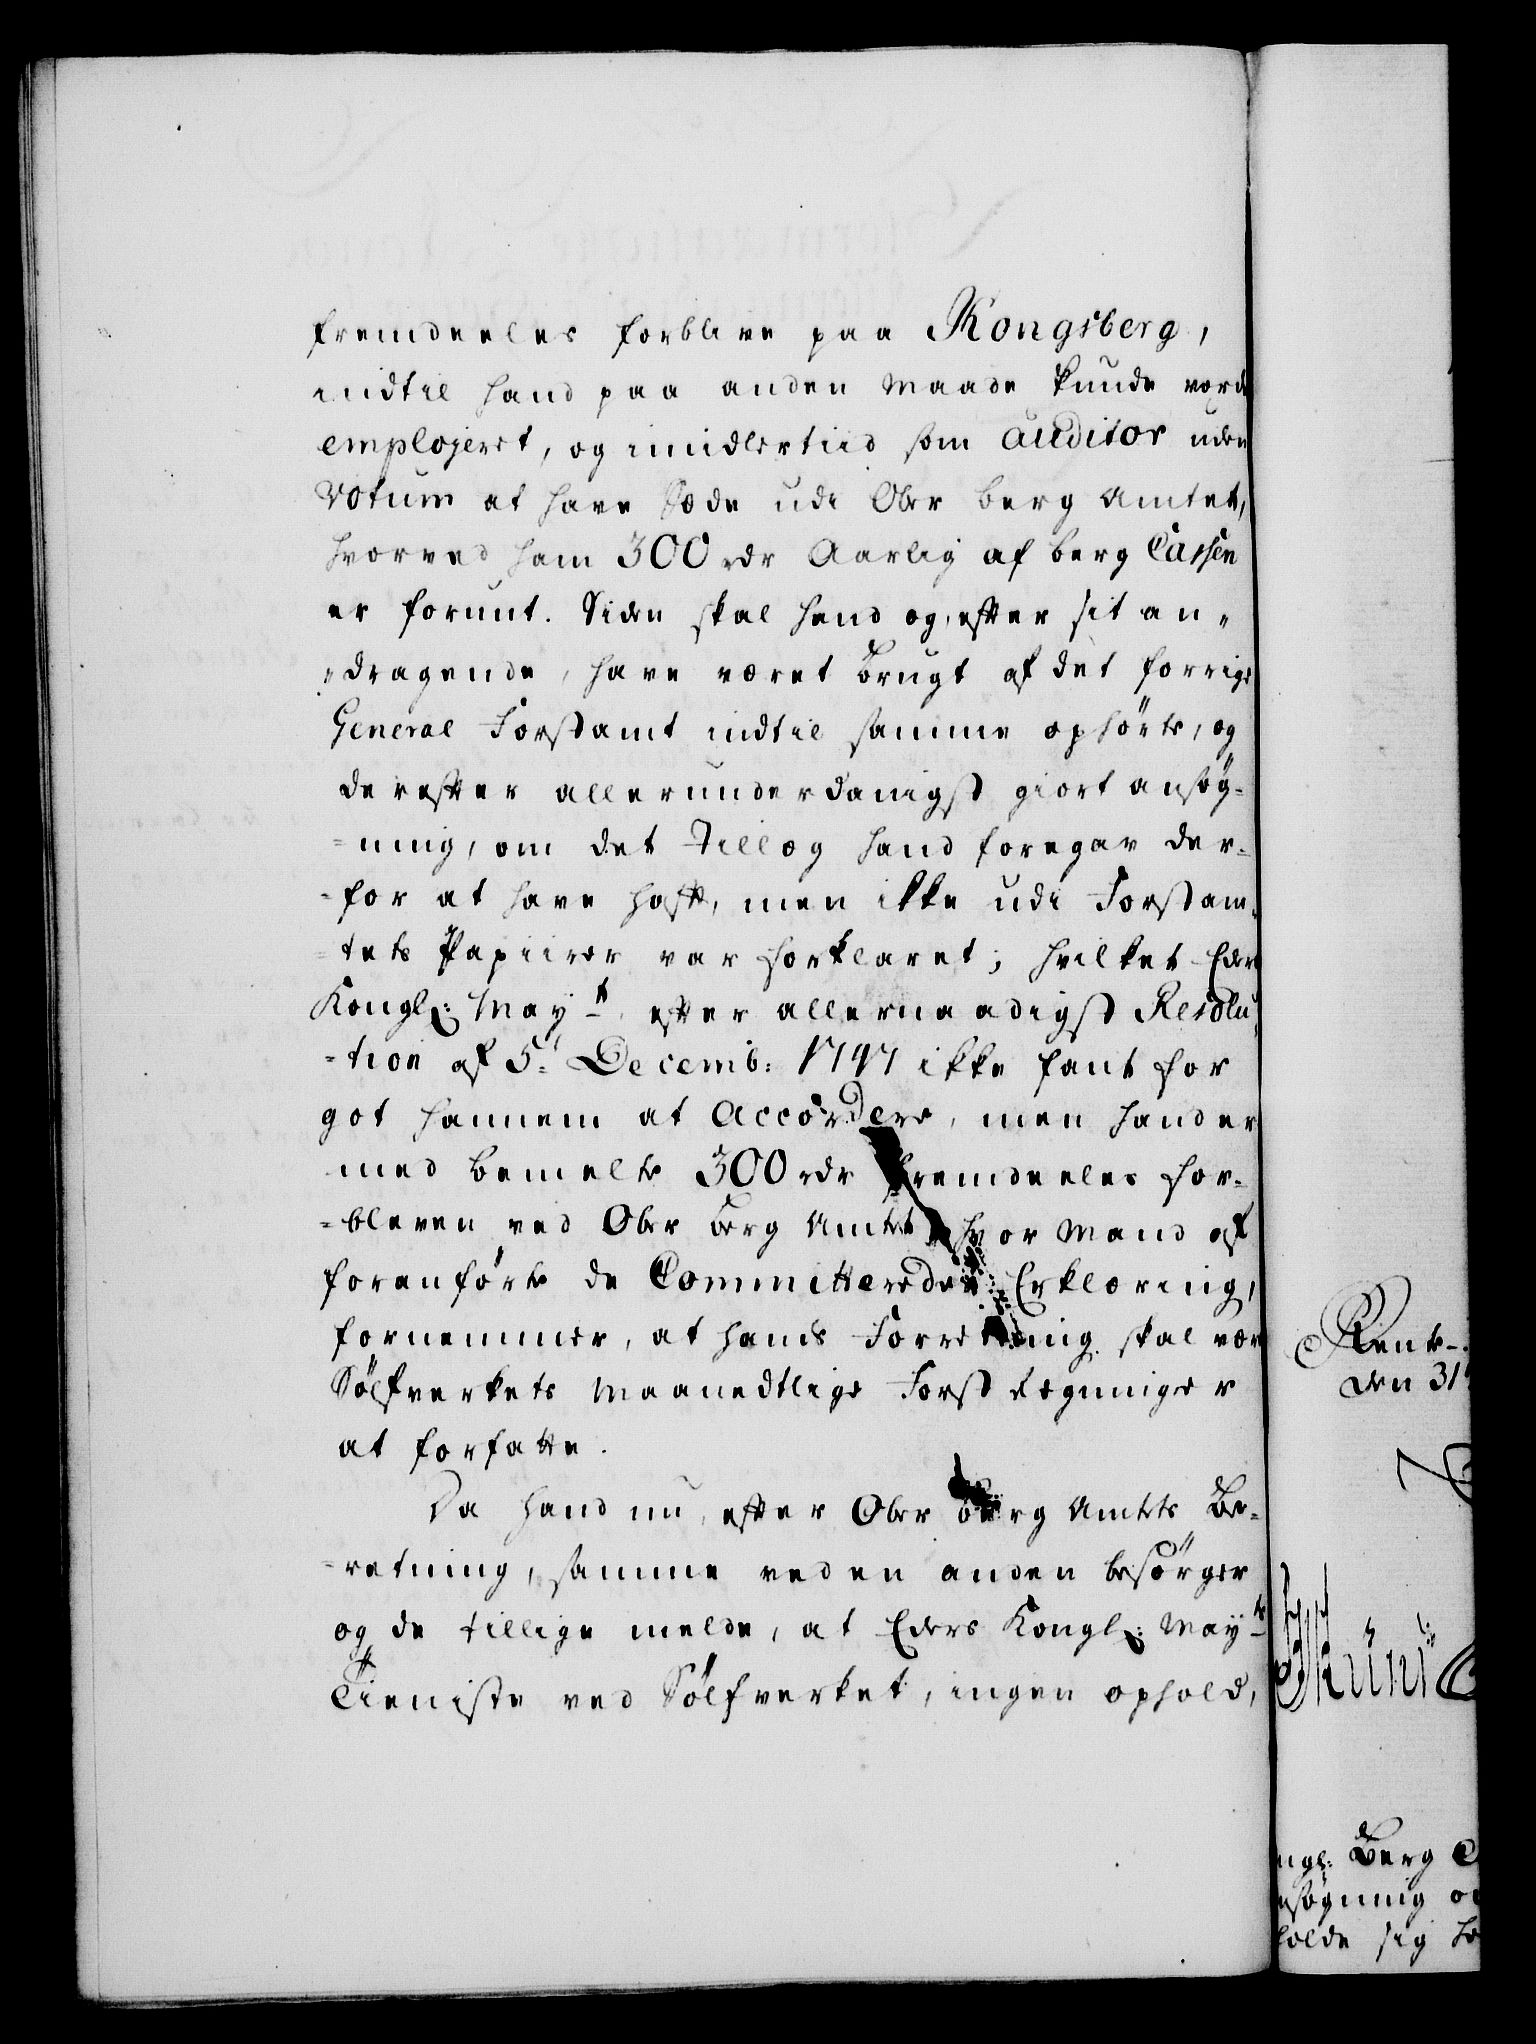 fremdeeles forblive paa Kongsberg,
indtil hand paa anden Maade kunde vorde
employeret, og imidlertiid som auditor uden
Votum at have Sæde udi Ober berg Amtet,
hvorved ham 300 rdr Aarlig af berg Cassen
er forunt. Siden skal hand og, efter sit an„
„dragende, have været brugt af det forrige
General Forstamt indtil samme ophörte, og
derefter allerunderdanigst giort ansög-
-ning, om det tillæg hand foregav der-
-for at have haft, men ikke udi Forstam-
-tets Papiirer var forklaret; hvilket Eders
Kongl: Mayt. efter allernaadigst Resolu-
-tion af 5t Decemb: 1747 ikke fant for
got hannem at Accordere, men hand er
med bemelte 300 rdr fremdeeles for-
-bleven ved Ober berg Amtet, hvor mand af
foranförte de Committeredes Erklæring,
fornemmer, at hands Forretning skal være
Sölfverkets Maanedtlige Forst Regninger
at forfatte.
Da hand nu, efter Ober berg Amtets Be-
-retning, samme ved en anden besörger
og de tillige melde, at Eders Kongl: Mayts
Tieniste ved Sölfverket, ingen ophold,
Rente-
den 31
ngl: Berg
nsögning
holde sig